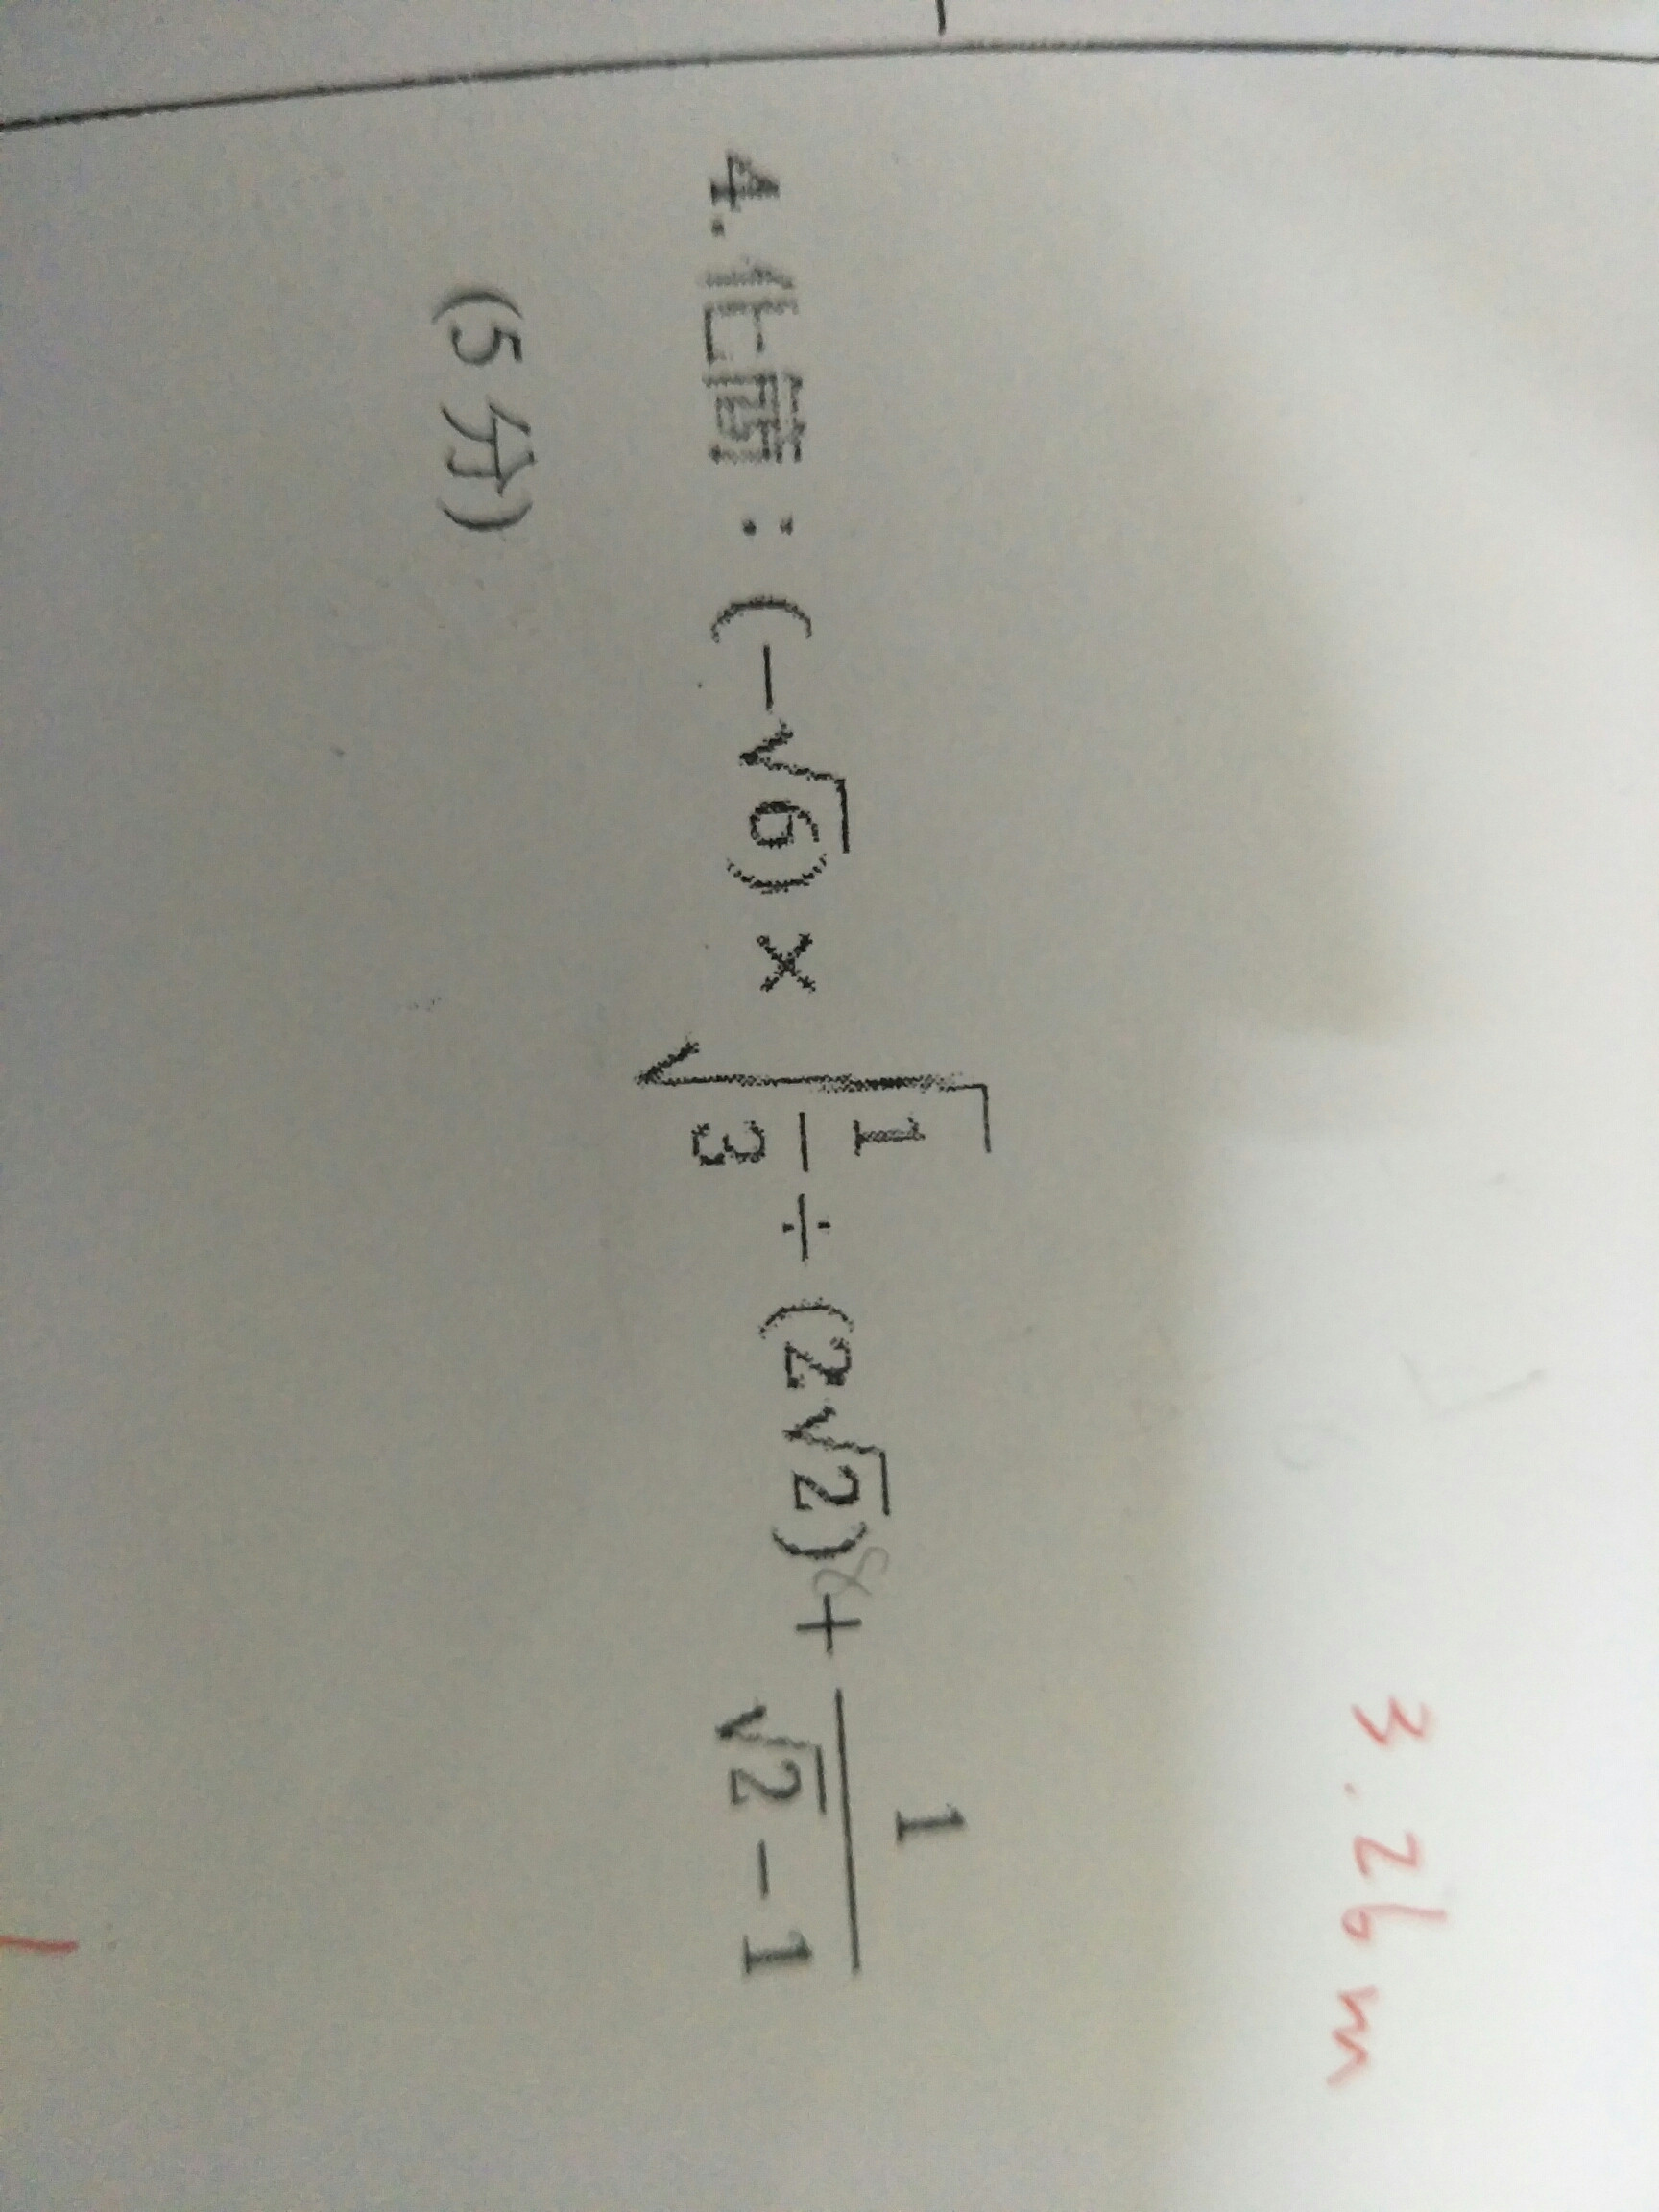 3.26m
4.化簡：(-√6)×√(1/3)÷(2√2)+1/(√2-1)
(5分)